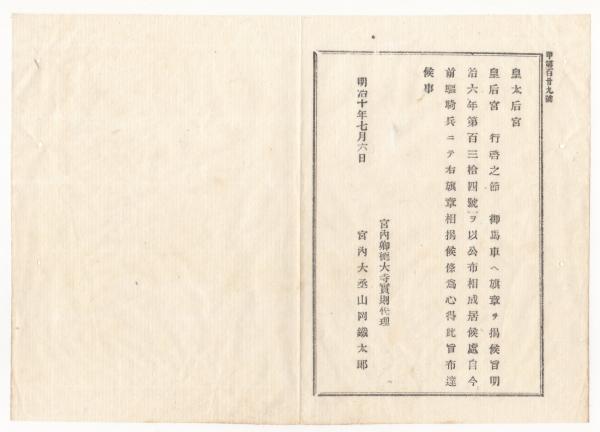 甲第百廿九號
皇太后宮
皇后宮 行啓之節 御馬車ヘ旗章ヲ揭候旨明
治六年第百三拾四號ヲ以公布相成居候處自今
前驅騎兵ニテ右旗章相揭候條爲心得此旨布達
候事
明治十年七月六日
宮內卿德大寺實則代理
宮內大丞山岡鐵太郎